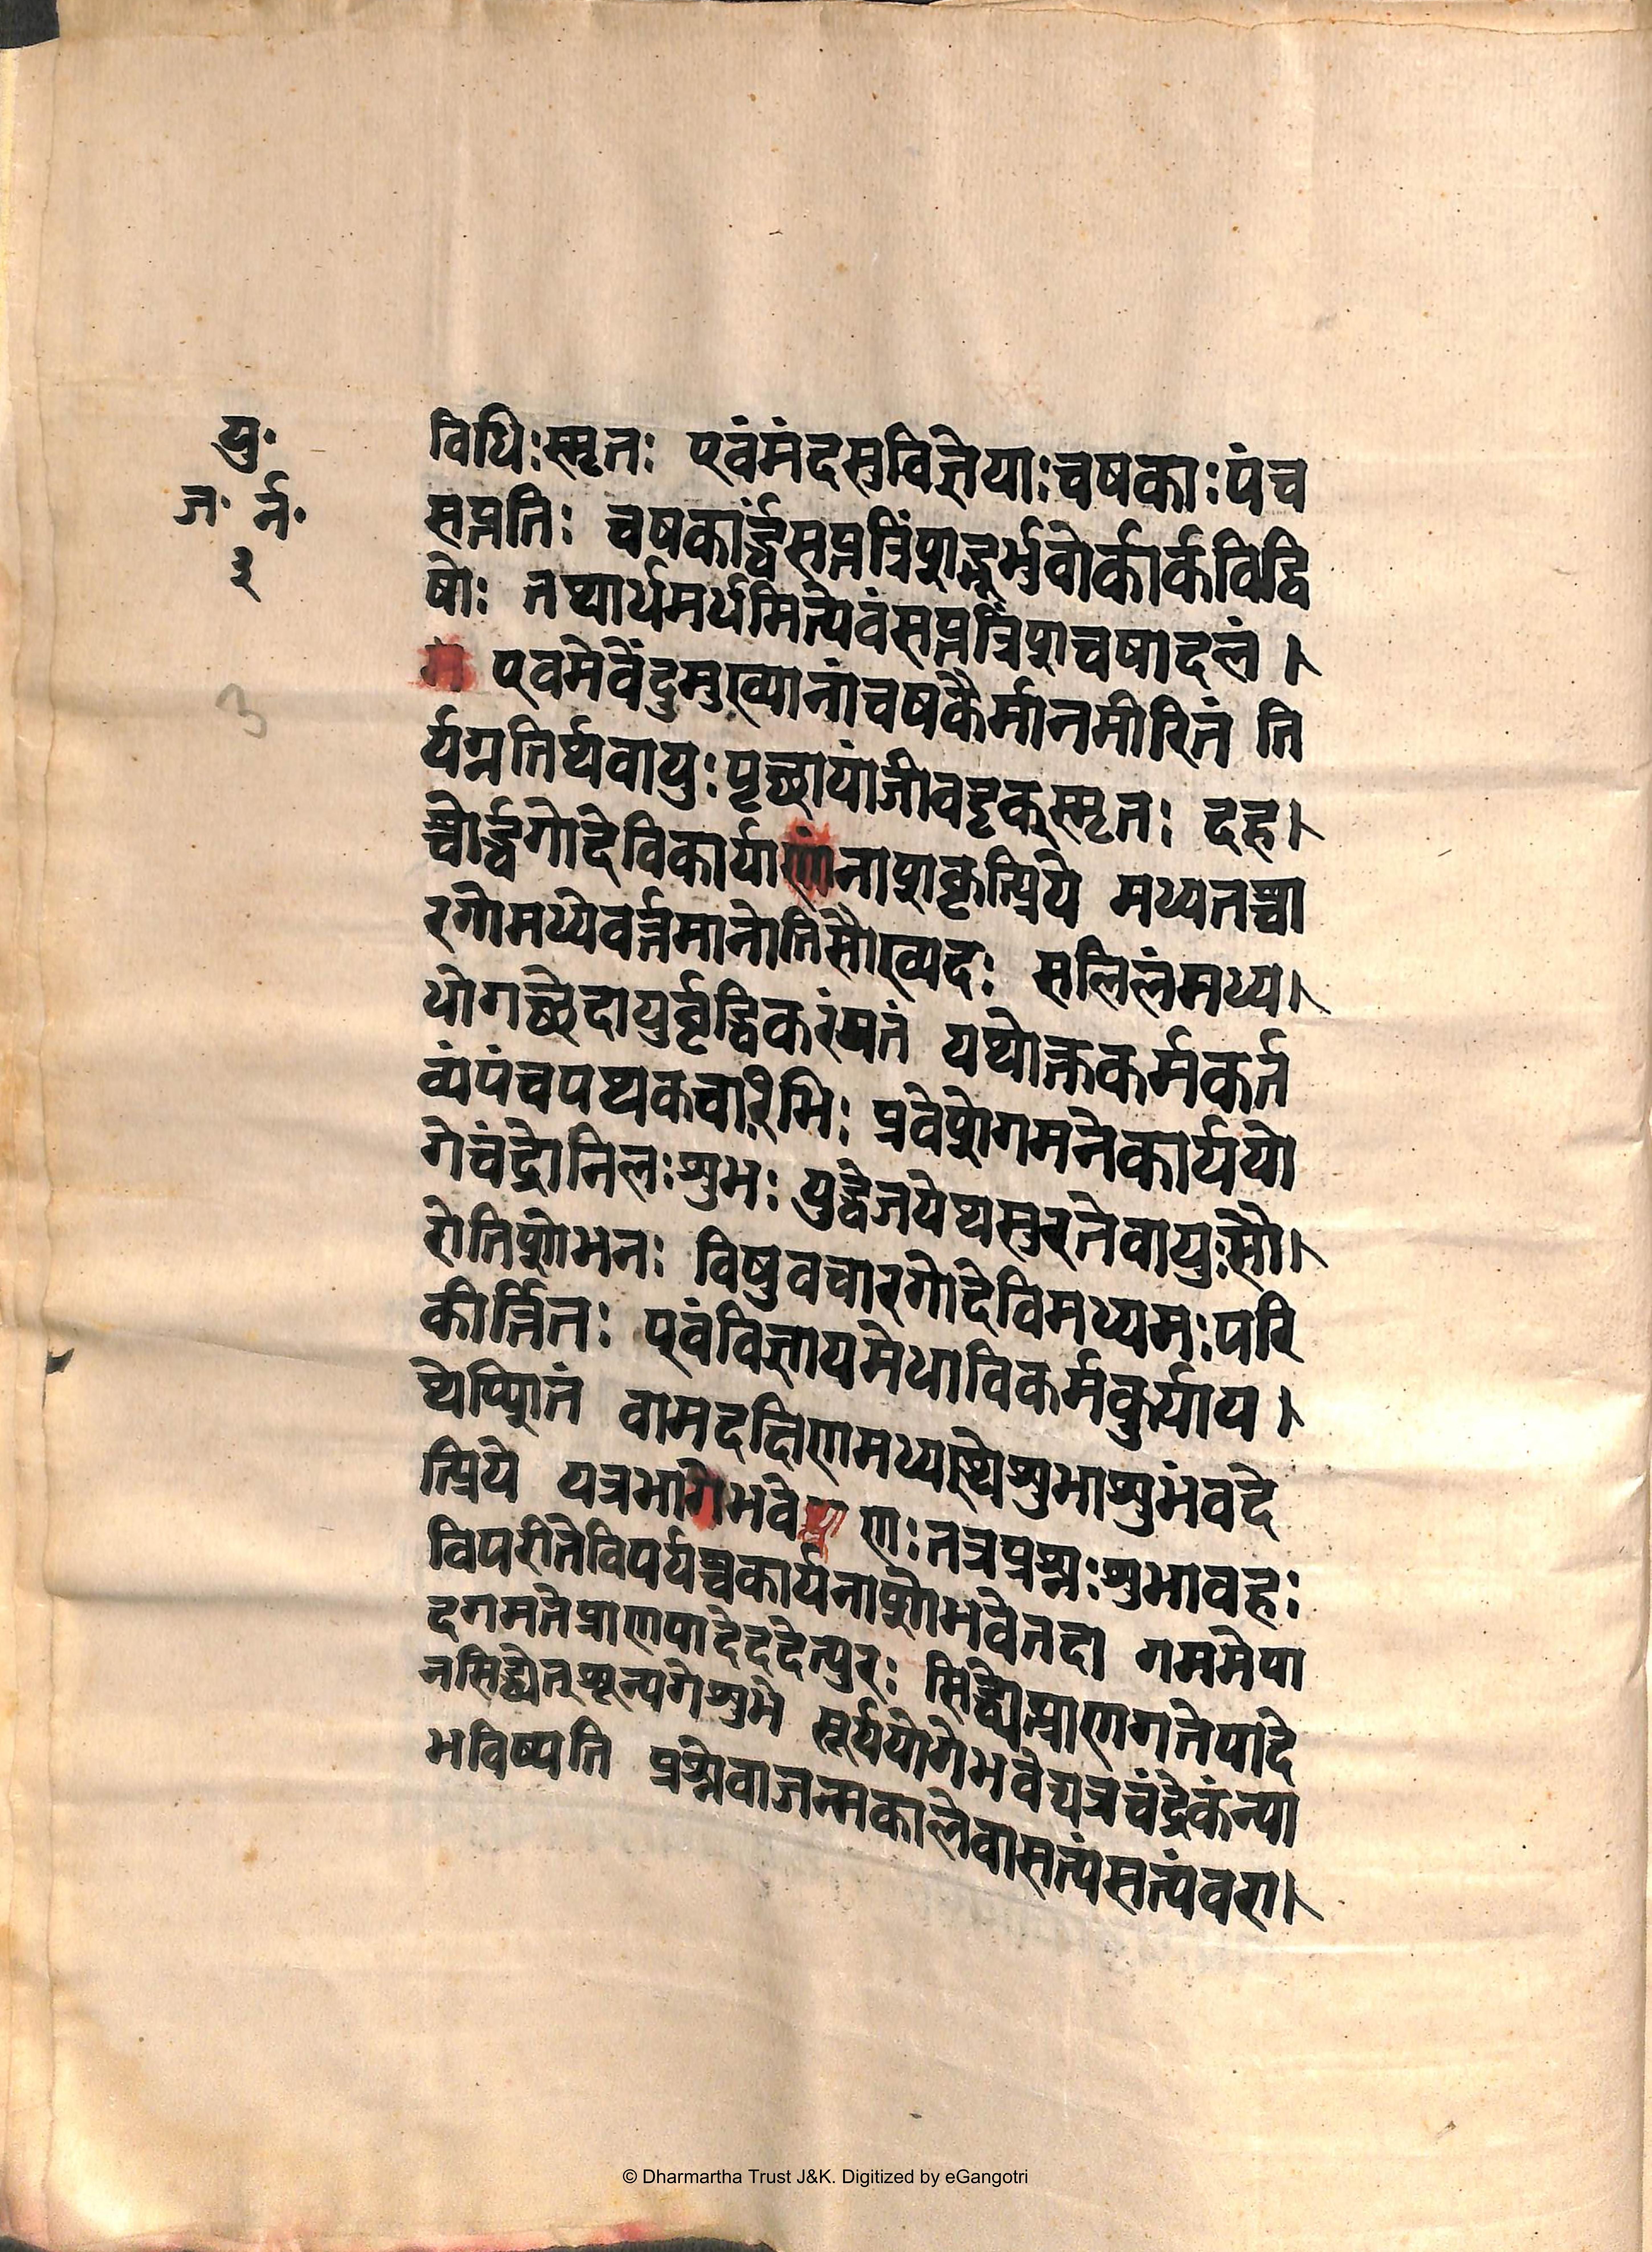 यु॰
ज॰ र्न॰
३
3
विधिःस्मृतः एवंमंदसुविज्ञेयाःचषकाःपंच
सप्ततिः चषकार्द्धंसप्तत्रिंशद्भूर्भुवोर्कार्कविद्वि
षोः तथार्धमर्धमित्येवंसप्तत्रिंशचषादलं ।
एवमेवेंदुमुख्यानांचषकैर्मानमीरितं ति
र्यग्गतिर्थवायुःपृच्छायांजीवदृक्स्मृतः दह।
च्चोर्द्धगोदेविकार्याणांनाशकृत्प्रिये मध्यतश्चा
रगोमध्येवर्त्तमानोतिसौख्यदः सलिलंमध्य।
योगच्छेदायुर्वृद्धिकरंमतं यथोक्तकर्मकर्त
व्यंपंचपथकचारिभिः प्रवेशेगमनेकार्ययो
गेचंद्रोनिलःशुभः युद्धेजयेथसुरतेवायुःसौ।
रोतिशोभनः विषुवचारगोदेविमध्यमःपरि
कीर्त्तितः एवंविज्ञायमेधाविकर्मकुर्याय।
थेप्शितं वामदक्षिणमध्यस्थेशुभाशुभंवदे
त्प्रिये यत्रभागेभवे णःतत्रप्रश्नःशुभावहः
विपरीतेविपर्यच्चकार्यनाशोभवेतदा गममेपा
दगमतेप्राणपादेददेत्पुरः सिद्ध्येत्प्राणगतेपादे
नसिद्ध्येत्शून्यगेशुभे सूर्ययोगेभवेद्यत्रचंद्रेकंन्या
भविष्यति प्रश्नेवाजन्मकालेवासत्यंसत्यंवरा।
© Dharmartha Trust J&K. Digitized by eGangotri